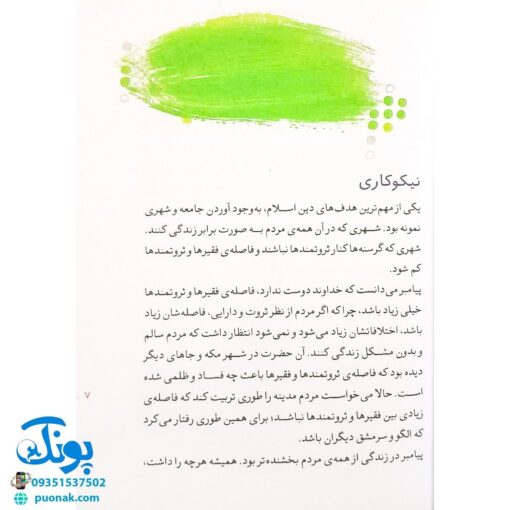 نیکوکاری
یکی از مهم‌ترین هدف‌های دین اسلام، به‌وجود آوردن جامعه و شهری
نمونه بود. شهری که در آن همه‌ی مردم به صورت برابر زندگی کنند.
شهری که گرسنه‌ها کنار ثروتمندها نباشند و فاصله‌ی فقیرها و ثروتمندها
کم شود.
پیامبر می‌دانست که خداوند دوست ندارد، فاصله‌ی فقیرها و ثروتمندها
خیلی زیاد باشد، چرا که اگر مردم از نظر ثروت و دارایی، فاصله‌شان زیاد
باشد، اختلافاتشان زیاد می‌شود و نمی‌شود انتظار داشت که مردم سالم
و بدون مشکل زندگی کنند. آن حضرت در شهر مکه و جاهای دیگر
دیده بود که فاصله‌ی ثروتمندها و فقیرها باعث چه فساد و ظلمی شده
است. حالا می‌خواست مردم مدینه را طوری تربیت کند که فاصله‌ی
زیادی بین فقیرها و ثروتمندها نباشد؛ برای همین طوری رفتار می‌کرد
که الگو و سرمشق دیگران باشد.
پیامبر در زندگی از همه‌ی مردم بخشنده‌تر بود. همیشه هرچه را داشت،
۷
پونک
09351537502
puonak.com